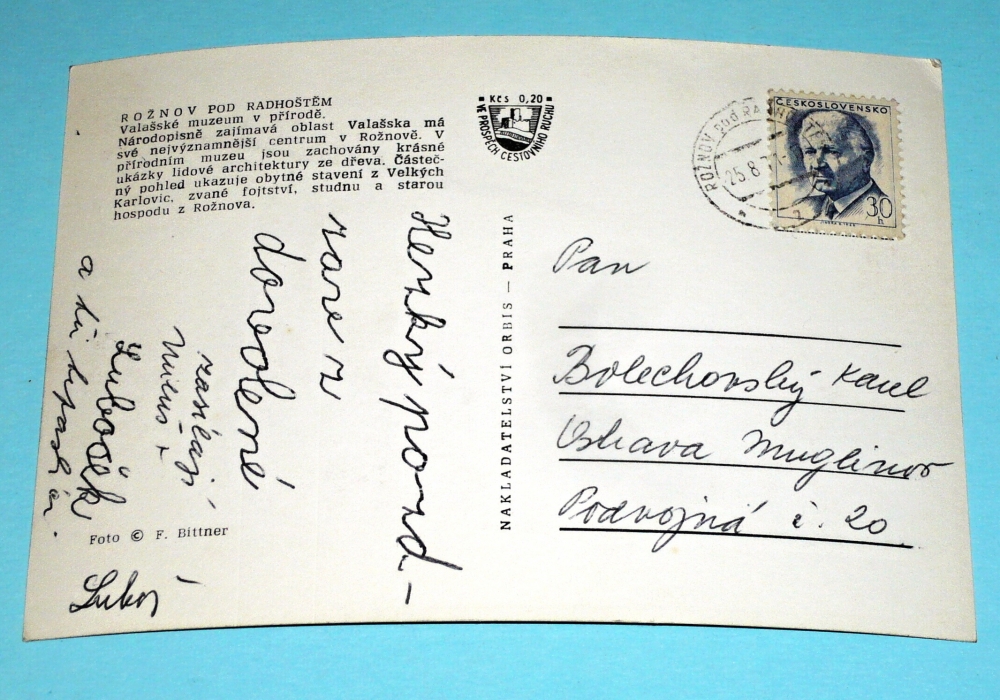 ROŽNOV POD RADHOŠTĚM
Valašské muzeum v přírodě.
Národopisně zajímavá oblast Valašska má
své nejvýznamnější centrum v Rožnově. V
přírodním muzeu jsou zachovány krásné
ukázky lidové architektury ze dřeva. Částeč-
ný pohled ukazuje obytné stavení z Velkých
Karlovic, zvané fojtství, studnu a starou
hospodu z Rožnova.
Kčs 0,20
VE PROSPĚCH CESTOVNÍHO RUCHU
ČESKOSLOVENSKO
30
h
ROŽNOV pod RADHOŠTĚM
25.8.71
NAKLADATELSTVÍ ORBIS — PRAHA
Pan
Bolechovský Karel
Ostrava Muglinov
Podvojná č. 20
Henký pozd-
rav z
dovolené
zasílají
a
Luboš
Foto © F. Bittner